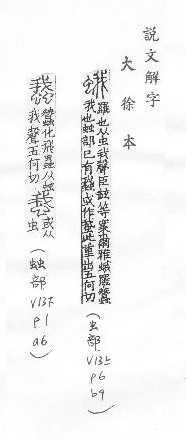 說文解字
大徐本
蛾 羅也从虫我聲臣鉉等案爾雅蛾羅蠶
蛾也䖵部已有或作此重出五何切
(虫部 V13上 p6 b9)
蠶化飛蟲从䖵
我聲五何切
或从
虫
(䖵部 V13下 p1 a6)